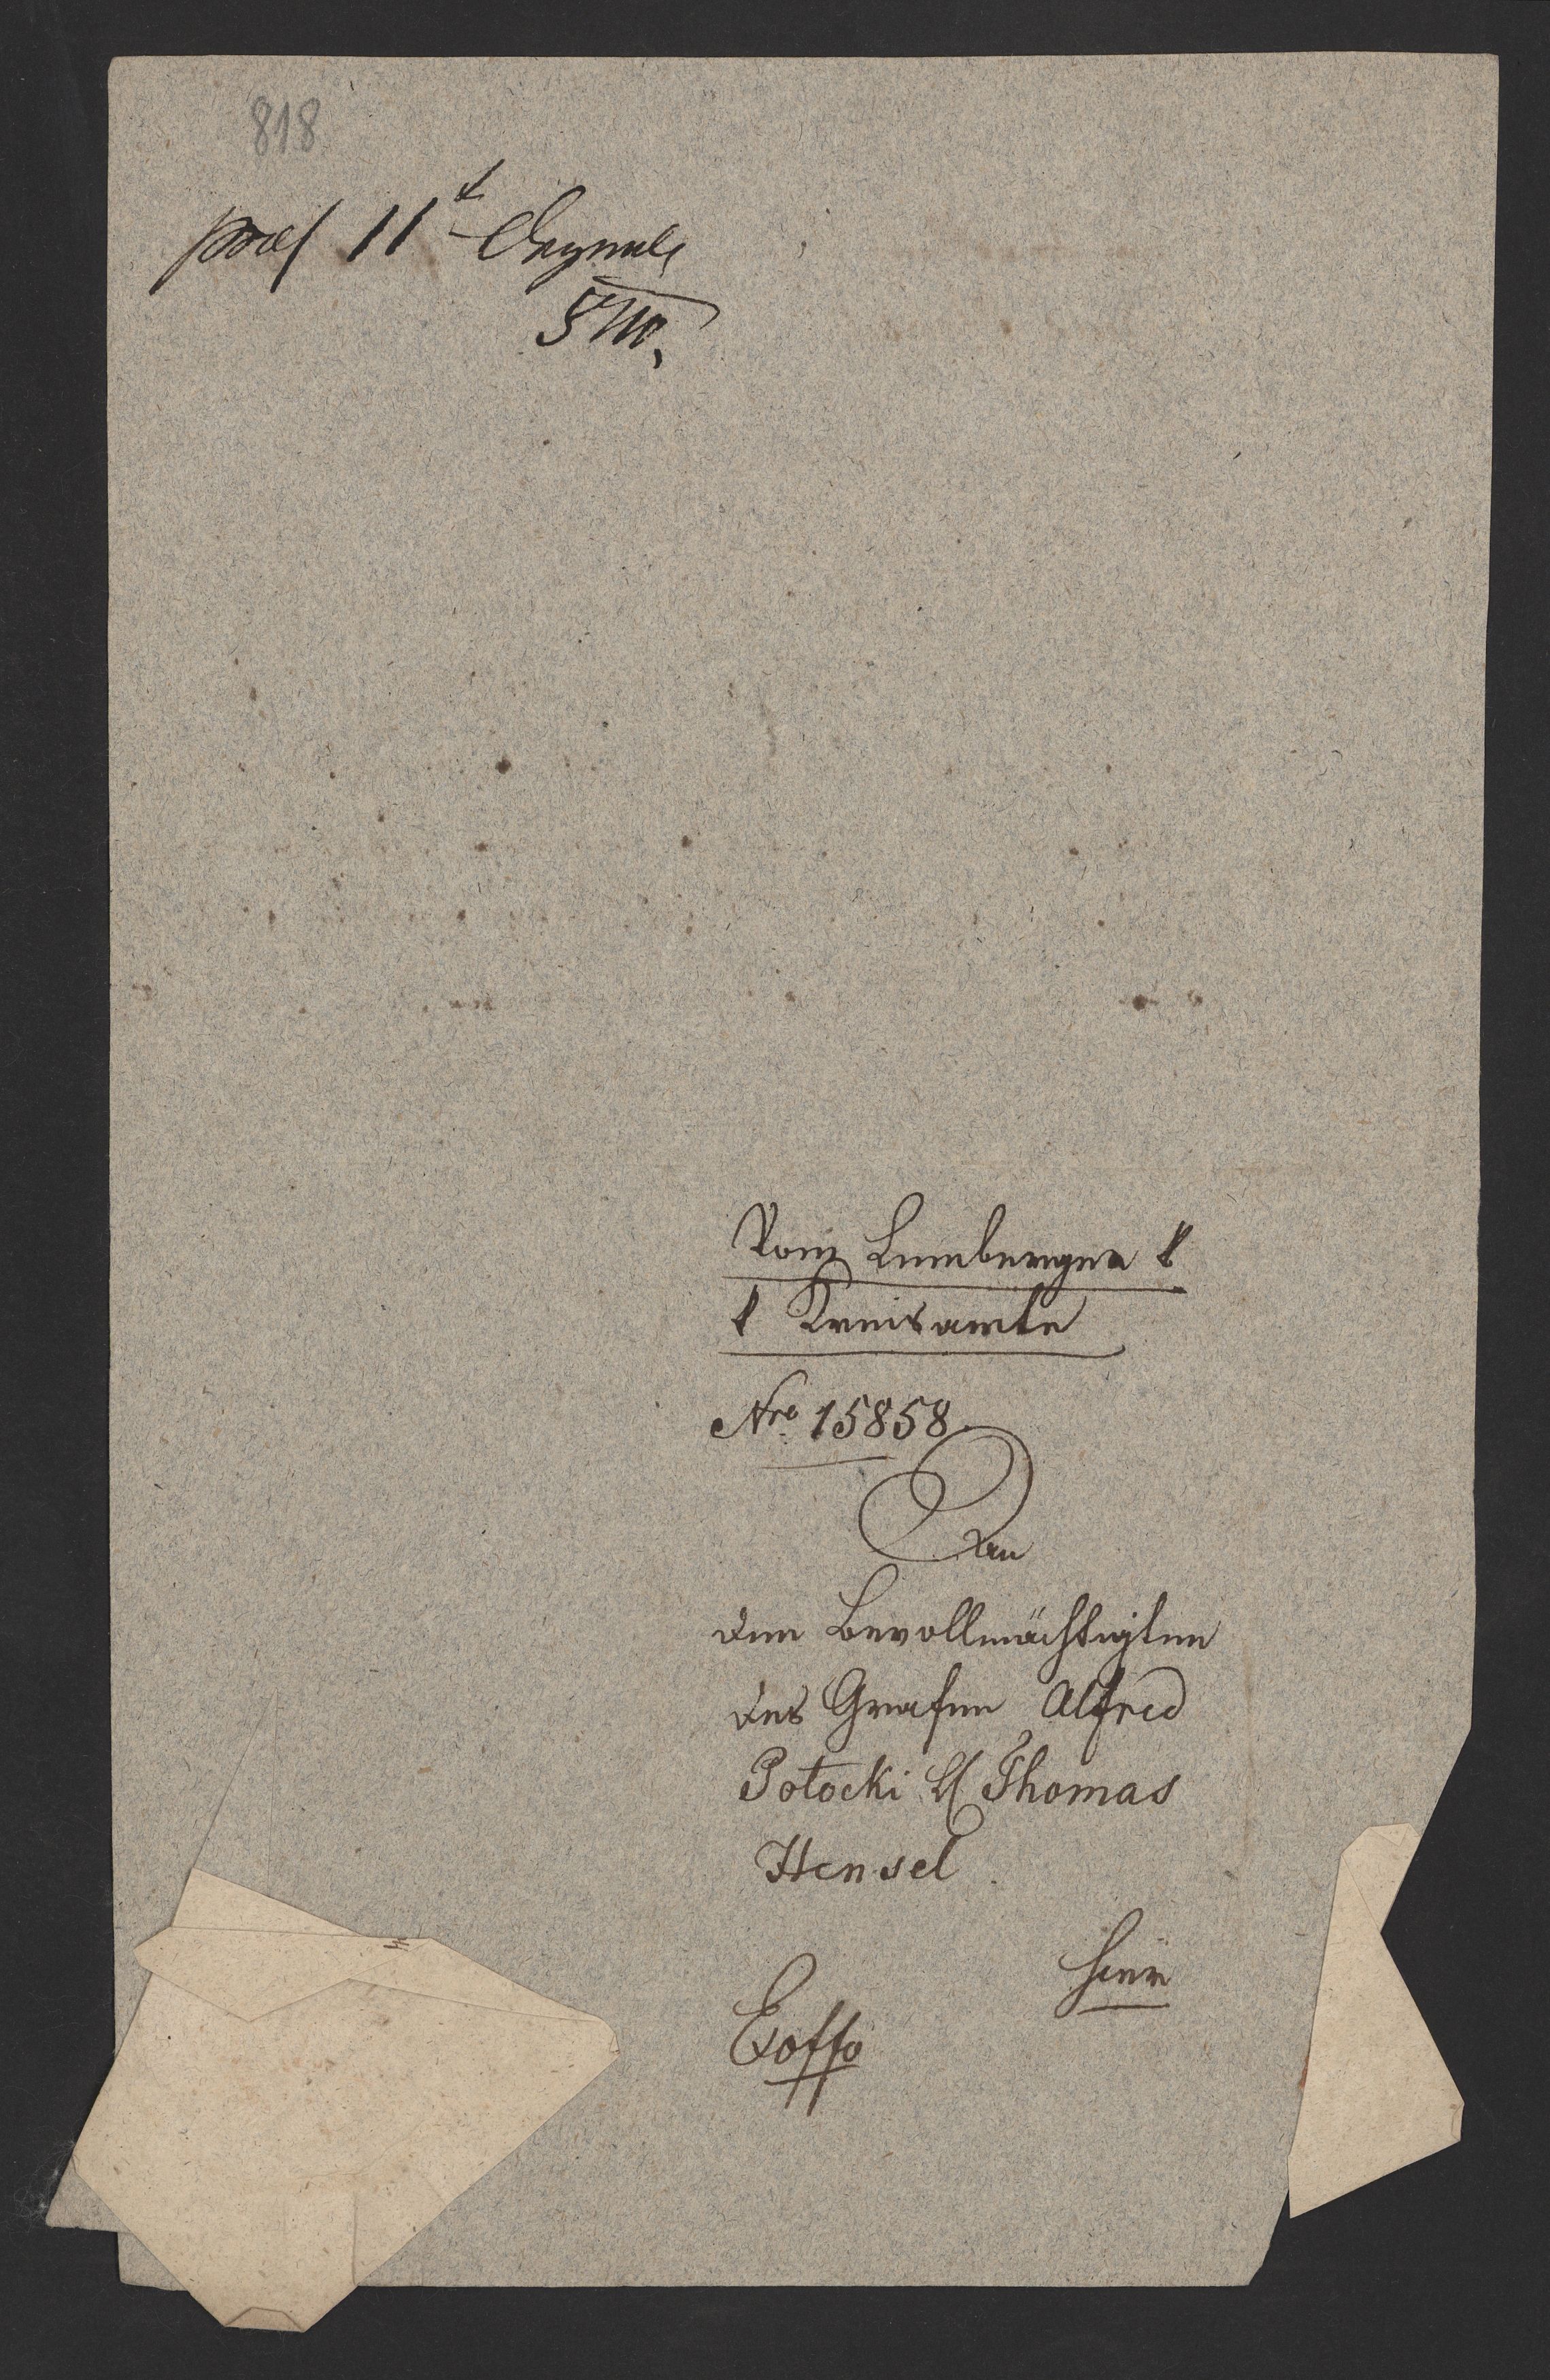 818
praes 11t
Vom Lemberger k
k Kreisamte
Nro 15858.
An
den Bevollmächtigten
des Grafen Alfred
Potocki H Thomas
Hensel
hier
Exoffo